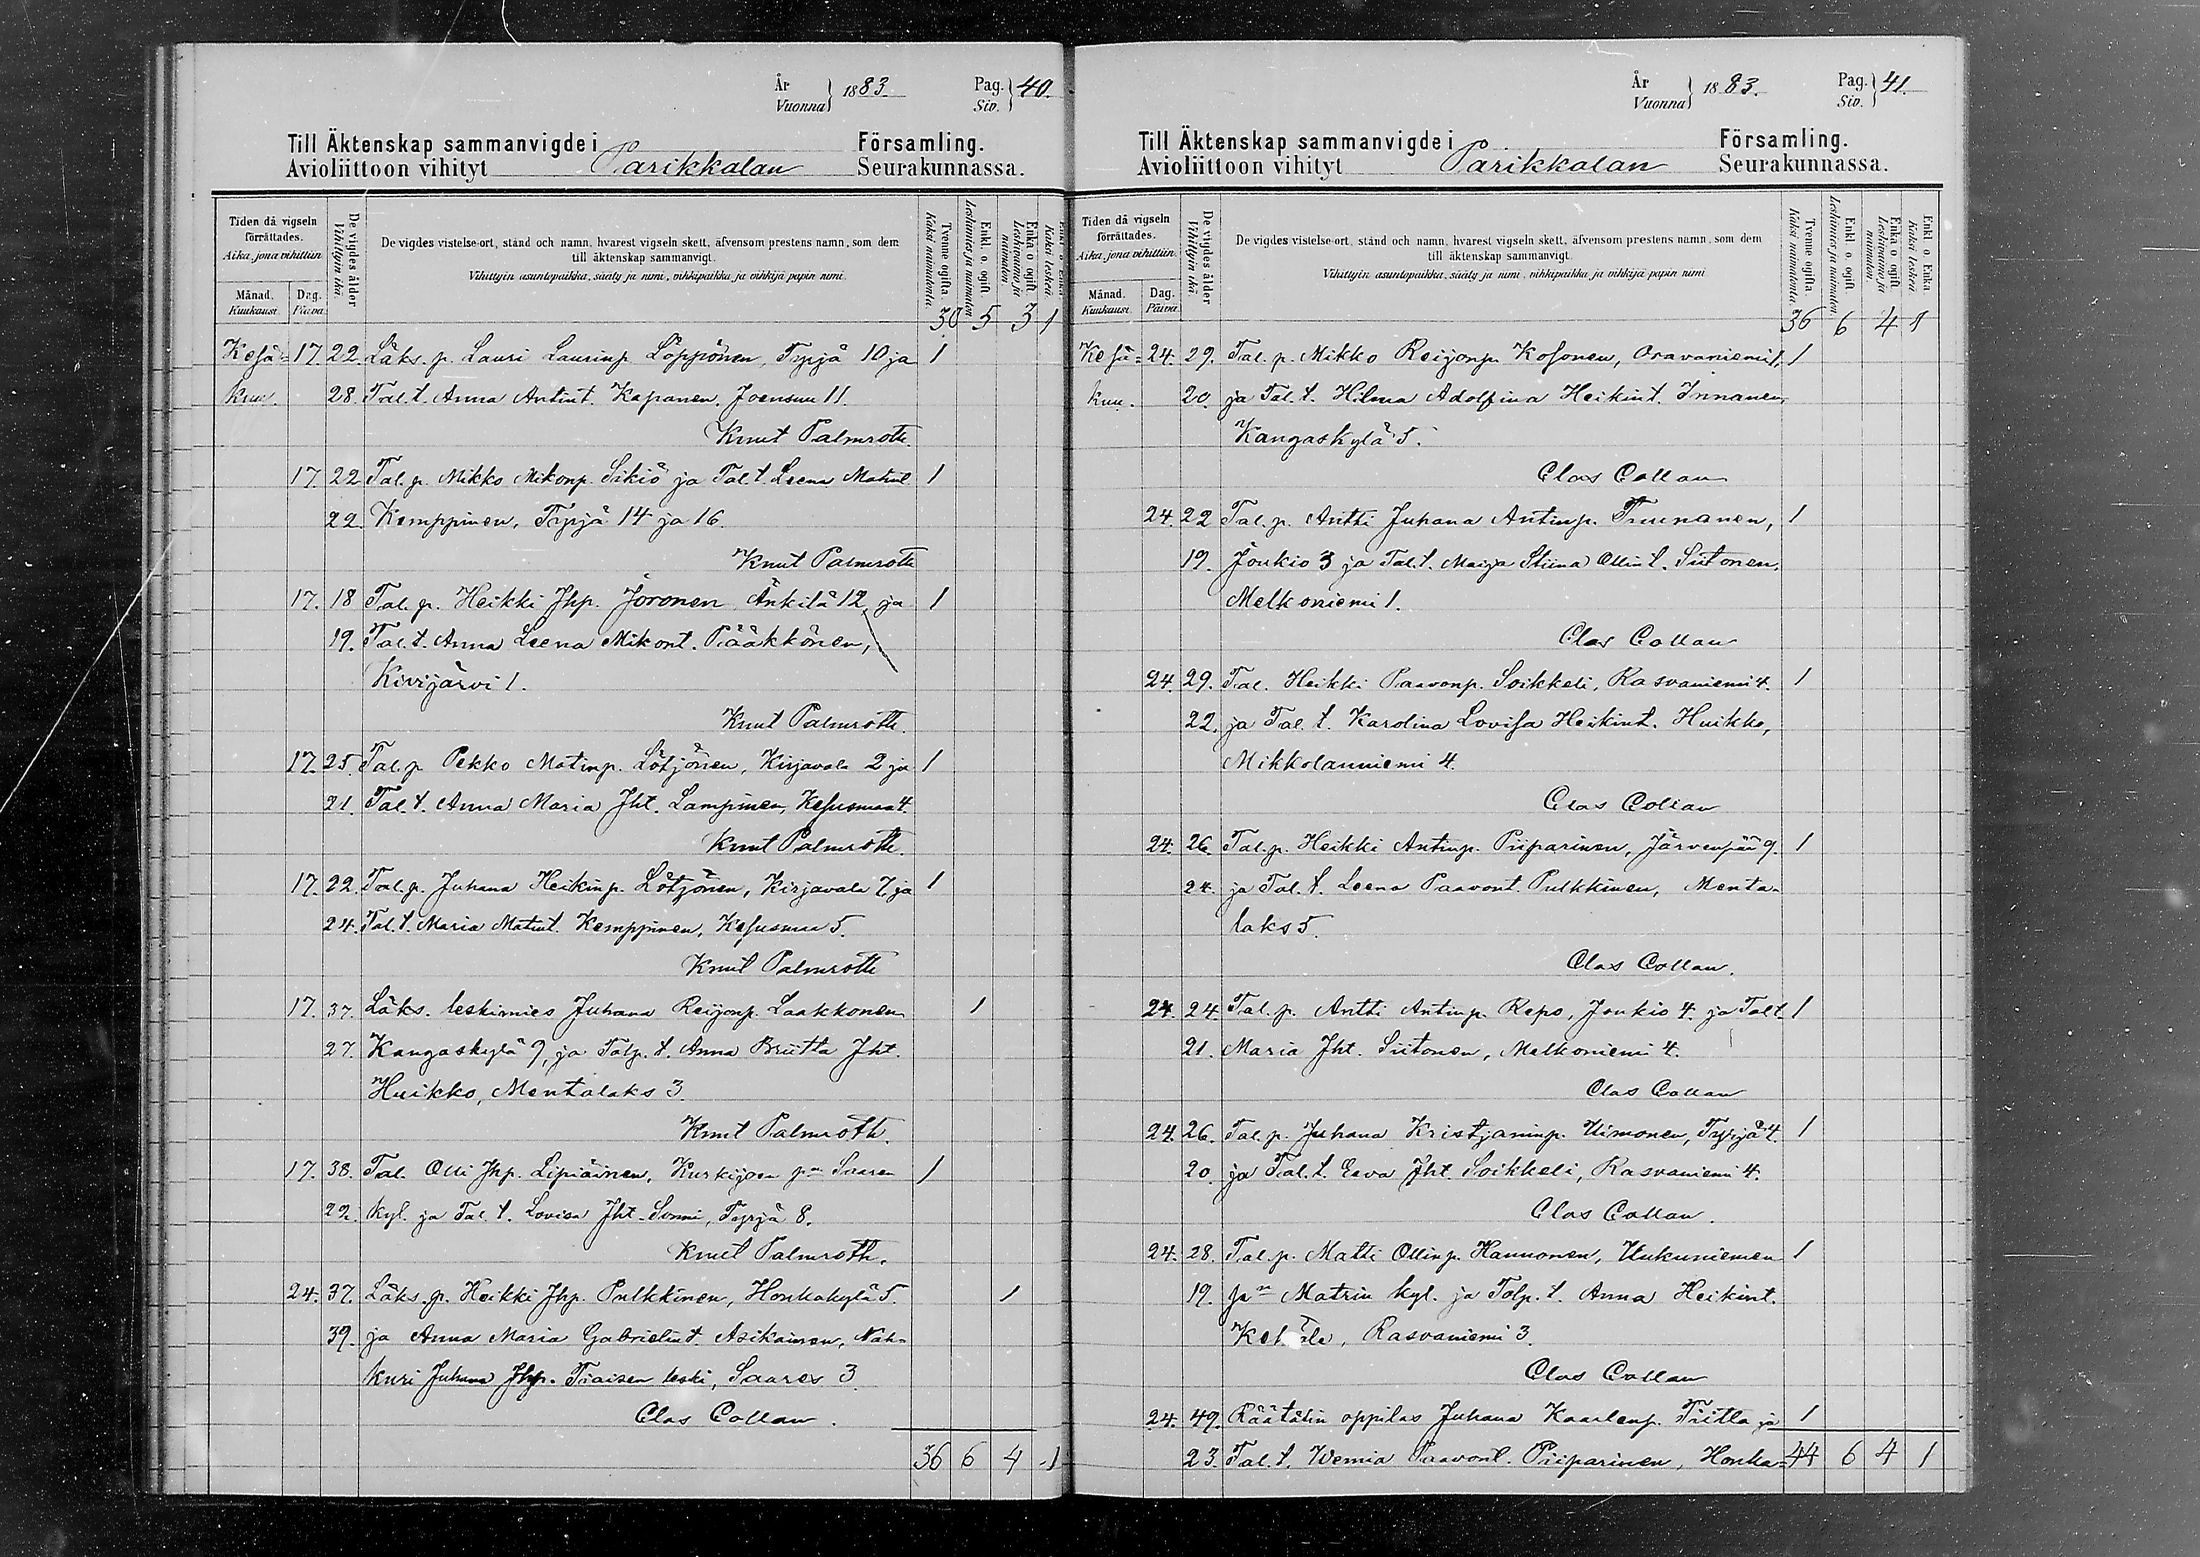 År Vuonna } 1883. Pag. Siv. } 40.
Till Äktenskap sammanvigde i Församling.
Avioliittoon vihityt Parikkalan Seurakunnassa.
Tiden då vigseln förrättades.
Aika, jona vihittiin
Månad. Kuukausi.
Dag. Päivä.
De vigdes ålder Vihittyin ikä.
De vigdes vistelse-ort, stånd och namn, hvarest vigseln skett, äfvensom prestens namn, som dem
till äktenskap sammanvigt.
Vihittyin asuntopaikka, sääty ja nimi, vihkipaikka ja vihkijä papin nimi.
Tvenne ogifta. Kaksi naimatonta.
Enkl. o. ogift. Leskimies ja naimaton
Enka o. ogift. Leskivaimo ja naimaton
Kaksi leskeä
30 5 3 1
Kesä= 17. 22. Läks. p. Lauri Laurinp. Löppönen, Tyrjä 10 ja 1
kuu. 28. Tal. t. Anna Antint. Kapanen, Joensuu 11.
Knut Palmroth.
17. 22. Tal. p. Mikko Mikonp. Sikiö ja Tal. t. Leena Matint. 1
22. Kemppinen, Tyrjä 14 ja 16.
Knut Palmroth
17. 18 Tal. p. Heikki Jhp. Joronen, Änkilä 12 ja 1
19. Tal. t. Anna Leena Mikont. Pääkkönen,
Kivijärvi 1.
Knut Palmroth.
17. 25. Tal. p. Pekko Matinp. Lötjönen, Kirjavala 2 ja 1
21. Tal. t. Anna Maria Jht. Lampinen, Kesusmaa 4.
Knut Palmroth.
17. 22. Tal. p. Juhana Heikinp. Lötjönen, Kirjavala 7 ja 1
24. Tal. t. Maria Matint. Kemppinen, Kesusmaa 5.
Knut Palmroth
17. 37. Läks. leskimies Juhana Reijonp. Laakkonen 1
27. Kangaskylä 9, ja Talp. t. Anna Briitta Jht.
Huikko, Mentalaks 3.
Knut Palmroth.
17. 38. Tal. Olli Jhp. Lipiäinen, Kurkijoen p:n Saaren 1
22. kyl. ja Tal. t. Lovisa Jht. Sonni, Tyrjä 8.
Knut Palmroth.
24. 37. Läks. p. Heikki Jhp. Pulkkinen, Honkakylä 5. 1
39. ja Anna Maria Gabrielint. Asikainen, Nah-
kuri Juhana Jhp. Tiaisen leski, Saares 3.
Clas Collan.
36 6 4 1
År Vuonna } 1883. Pag. Siv. } 41.
Till Äktenskap sammanvigde i Församling.
Avioliittoon vihityt Parikkalan Seurakunnassa.
Tiden då vigseln förrättades.
Aika, jona vihittiin
Månad. Kuukausi.
Dag. Päivä.
De vigdes ålder Vihittyin ikä.
De vigdes vistelse-ort, stånd och namn, hvarest vigseln skett, äfvensom prestens namn, som dem
till äktenskap sammanvigt.
Vihittyin asuntopaikka, sääty ja nimi, vihkipaikka ja vihkijä papin nimi
Tvenne ogifta. Kaksi naimatonta.
Enkl. o. ogift. Leskimies ja naimaton
Enka o. ogift. Leskivaimo ja naimaton.
Enkl. o. Enka Kaksi leskeä
36 6 4 1
Kesä= 24. 29. Tal. p. Mikko Reijonp. Kosonen, Oravaniemi 1, 1
kuu. 20. ja Tal. t. Hilma Adolfina Heikint. Innanen,
Kangaskylä 5.
Clas Collan
24. 22 Tal. p. Antti Juhana Antinp. Truunanen, 1
19. Joukio 3 ja Tal. t. Maija Stiina Ollint. Siitonen,
Melkoniemi 1.
Clas Collan
24. 29. Tal. Heikki Paavonp. Soikkeli, Rasvaniemi 4. 1
22. ja Tal. t. Karolina Lovisa Heikint. Huikko,
Mikkolanniemi 4.
Clas Collan
24. 26. Tal. p. Heikki Antinp. Piiparinen, Järvenpää 9. 1
24. ja Tal. t. Leena Paavont. Pulkkinen, Menta-
laks 5.
Clas Collan.
24. 24. Tal. p. Antti Antinp. Repo, Joukio 4. ja Tal. t. 1
21. Maria Jht. Siitonen, Melkoniemi 4.
Clas Collan
24. 26. Tal. p. Juhana Kristjaninp. Uimonen, Tyrjä 4. 1
20. ja Tal. t. Eeva Jht. Soikkeli, Rasvaniemi 4.
Clas Collan.
24. 28. Tal. p. Matti Ollinp. Hannonen, Uukuniemen 1
19. p:n Matrin kyl. ja Talp. t. Anna Heikint.
Rasvaniemi 3.
Clas Collan
24. 49. Räätälin oppilas Juhana Kaarlenp. Tiitta ja 1
23. Tal. t. Wemia Paavont. Piiparinen, Honka=
44 6 4 1